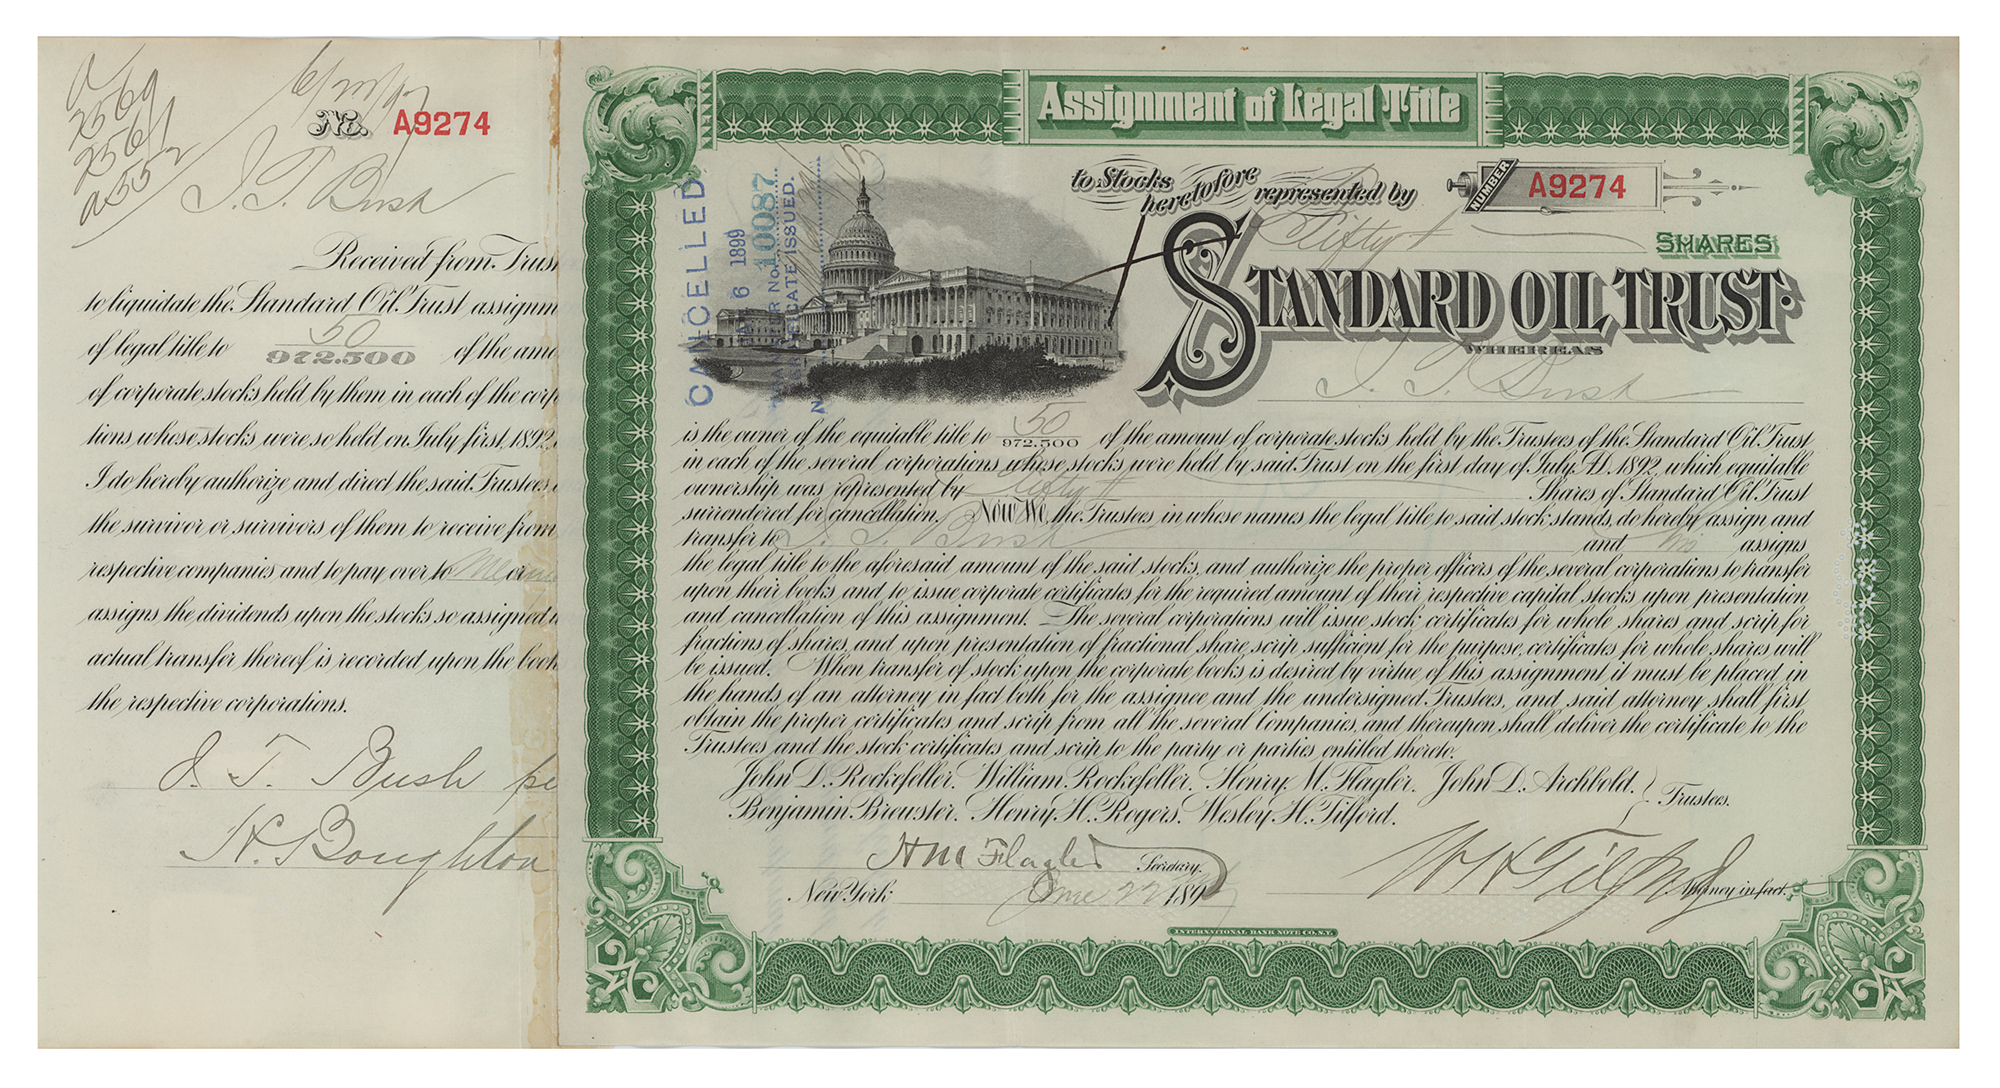 a
2569
2561
a552
6/22/97
No. A9274
I. T. Bush
Received from Trus
to liquidate the Standard Oil Trust assignm
of legal title to 50
972.500 of the amo
of corporate stocks held by them in each of the corp
tions whose stocks were so held on July first, 1892,
I do hereby authorize and direct the said Trustees,
the survivor or survivors of them to receive from
respective companies and to pay over to Me or
assigns the dividends upon the stocks so assigned
actual transfer thereof is recorded upon the book
the respective corporations.
I. T. Bush pe
H. Boughton
Assignment of Legal Title
to Stocks heretofore represented by
NUMBER A9274
Fifty
SHARES
STANDARD OIL TRUST.
WHEREAS
I. T. Bush
is the owner of the equitable title to 50/972.500 of the amount of corporate stocks held by the Trustees of the Standard Oil Trust
in each of the several corporations whose stocks were held by said Trust on the first day of July A.D. 1892, which equitable
ownership was represented by Fifty Shares of Standard Oil Trust
surrendered for cancellation. Now We, the Trustees, in whose names the legal title to said stock stands, do hereby assign and
transfer to I. T. Bush and his assigns
the legal title to the aforesaid amount of the said stocks, and authorize the proper officers of the several corporations to transfer
upon their books and to issue corporate certificates for the required amount of their respective capital stocks upon presentation
and cancellation of this assignment. The several corporations will issue stock certificates for whole shares and scrip for
fractions of shares, and upon presentation of fractional share scrip sufficient for the purpose, certificates for whole shares will
be issued. When transfer of stock upon the corporate books is desired by virtue of this assignment it must be placed in
the hands of an attorney in fact both for the assignee and the undersigned Trustees, and said attorney shall first
obtain the proper certificates and scrip from all the several Companies, and thereupon shall deliver the certificate to the
Trustees, and the stock certificates and scrip to the party or parties entitled thereto.
John D. Rockefeller. William Rockefeller. Henry M. Flagler. John D. Archbold.
Benjamin Brewster. Henry H. Rogers. Wesley H. Tilford. Trustees.
H M Flagler Secretary.
New York June 22 1897
W H Tilford Attorney in fact.
INTERNATIONAL BANK NOTE CO. N.Y.
CANCELLED
6 1899
10087
CATE ISSUED.